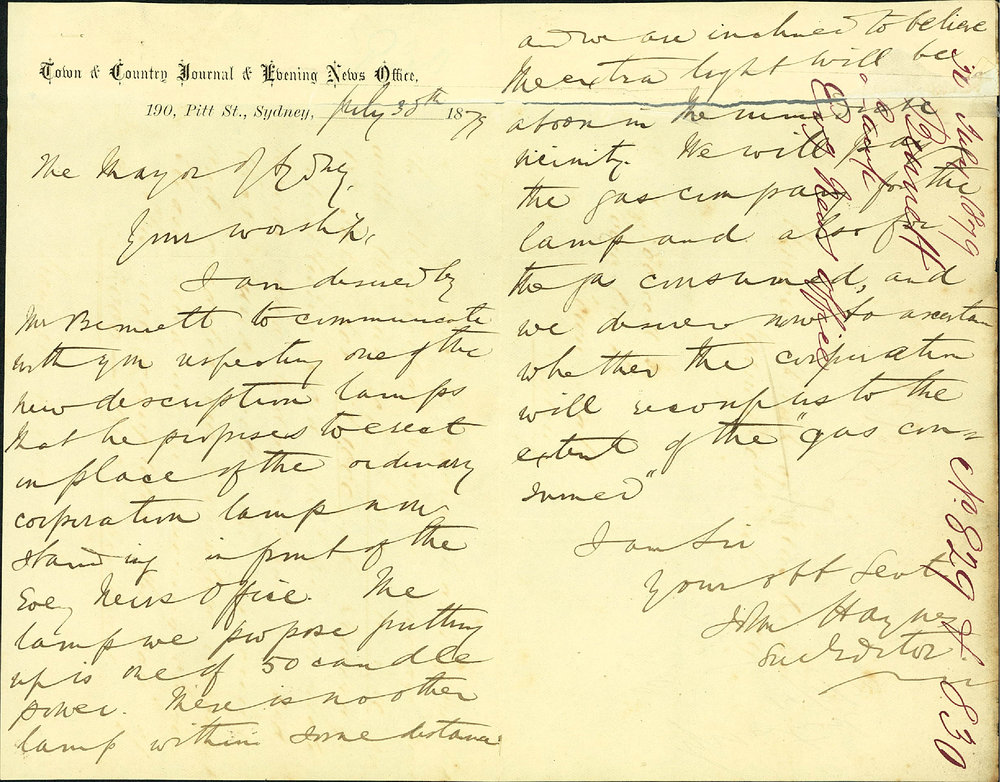 Town & Country Journal & Evening News Office,
190, Pitt St., Sydney, July 30th 1879
The Mayor of Sydney,
Your worship,
I am desired by
Mr Bennett to communicate
with you respecting one of the
new description lamps
that he proposes to erect
in place of the ordinary
corporation lamp now
standing in front of the
Eveg News Office. The
lamp we propose putting
up is one of 50 candle
power. There is no other
lamp within some distance
and we are inclined to believe
the extra light will be
a boon in the immediate
vicinity. We will pay
the gas company for the
lamp and also for
the gas consumed, and
we desire now to ascertain
whether the corporation
will recoup us to the
extent of the "gas con=
sumed"
I am Sir
Your obt Servt
John Haynes
Sub Editor
30 July 1879
Bennett
Lamp
Eveg News Office
No 829 & 830